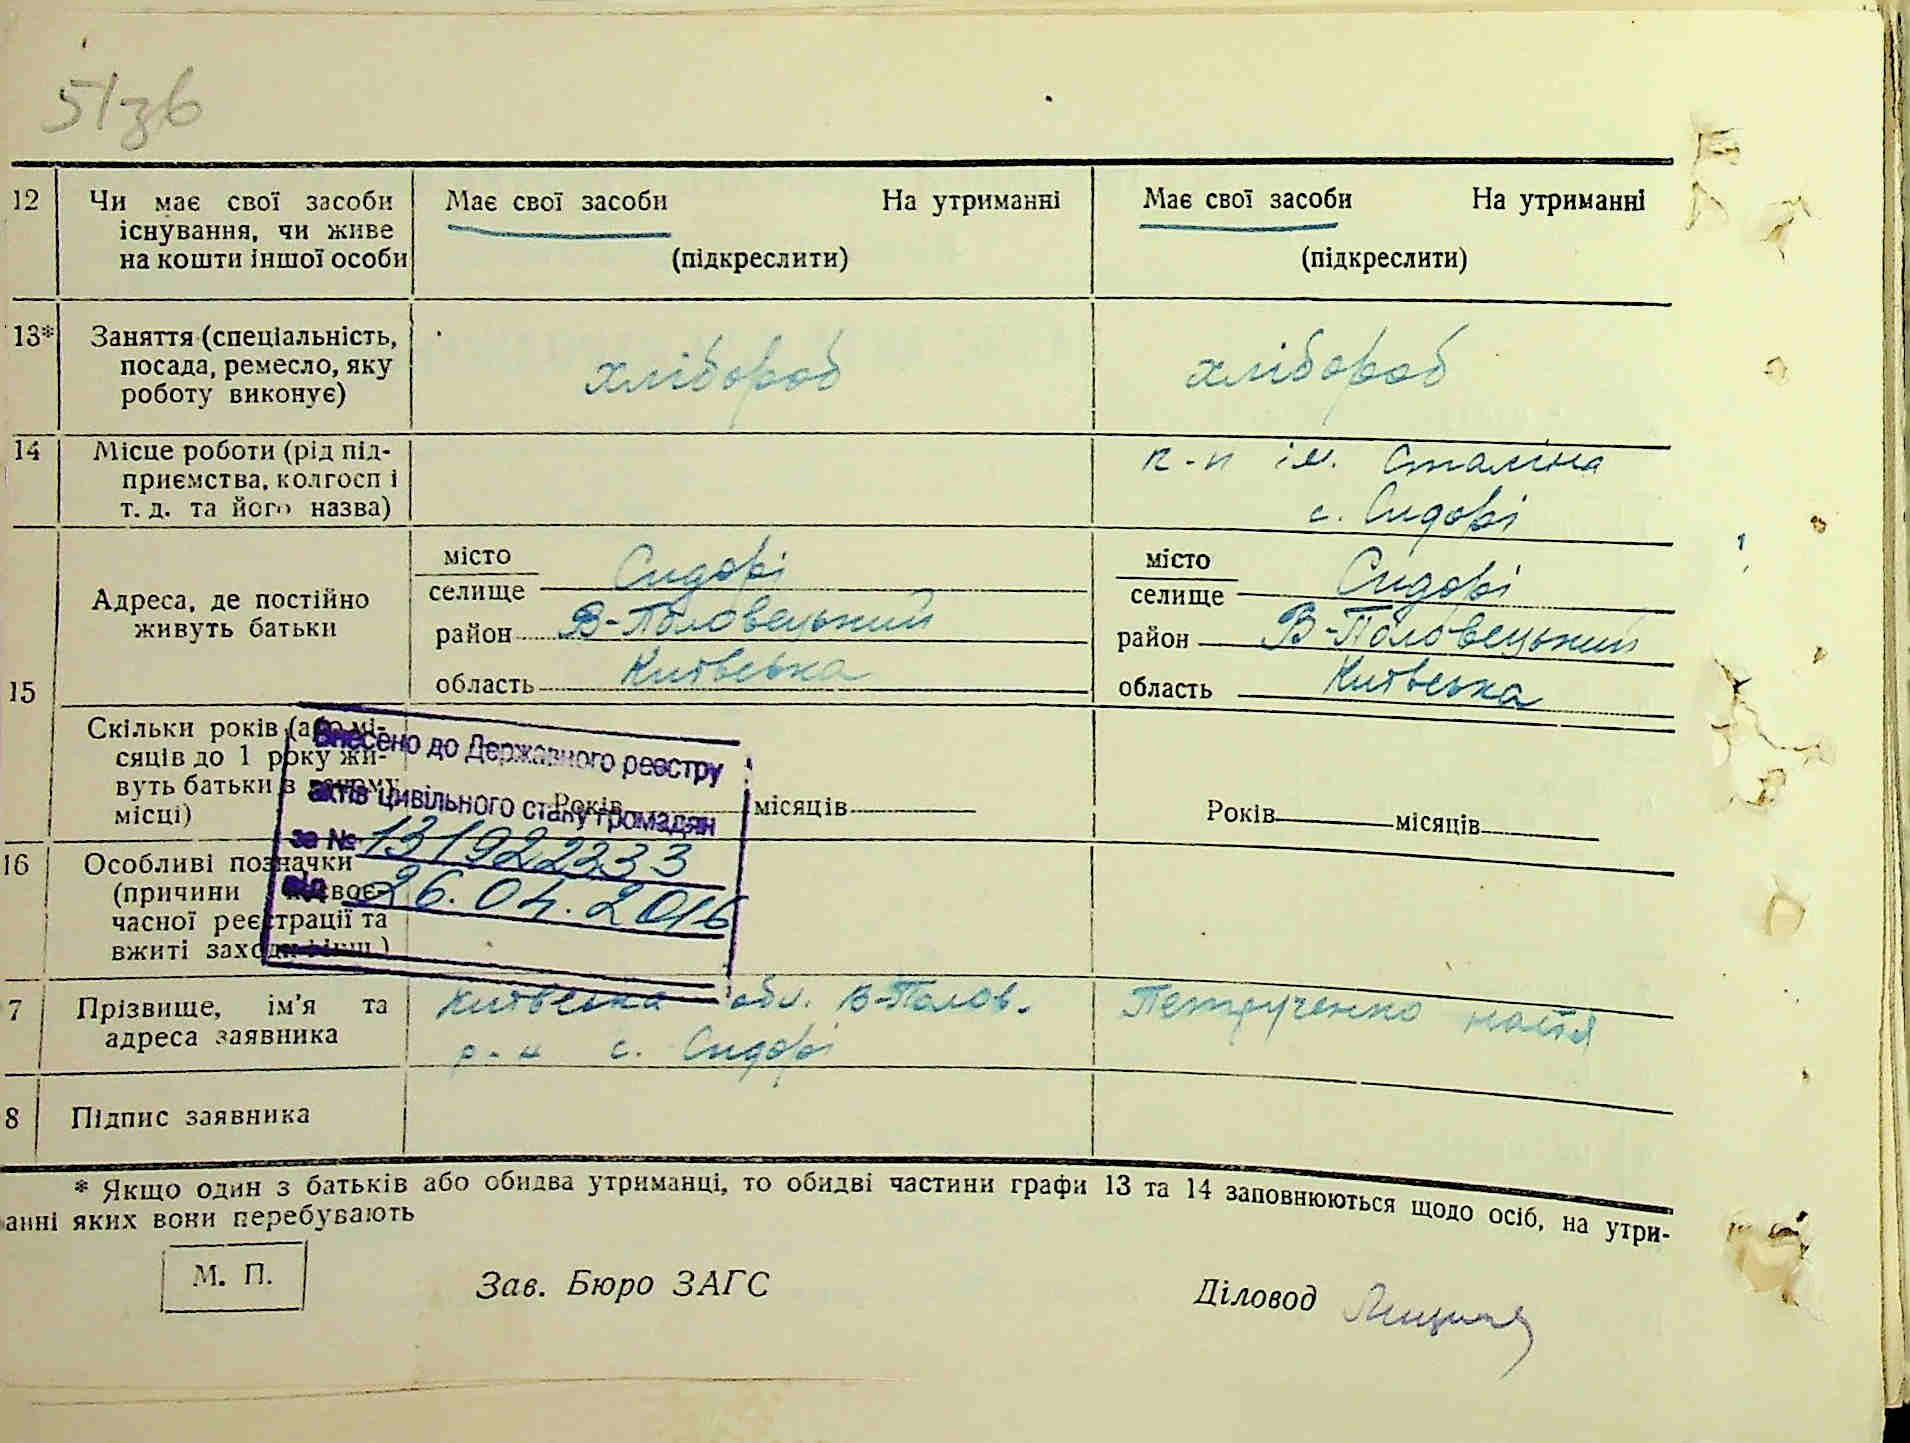 51зв
12 Чи має свої засоби існування, чи живе на кошти іншої особи
Має свої засоби На утриманні
(підкреслити)
Має свої засоби На утриманні
(підкреслити)
13* Заняття (спеціальність, посада, ремесло, яку роботу виконує)
хлібороб
хлібороб
14 Місце роботи (рід під-
приємства, колгосп і
т. д. та його назва)
к-п ім. Сталіна
с. Сидорі
15 Адреса, де постійно
живуть батьки
місто
селище Сидорі
район В-Половецький
область Київська
місто
селище Сидорі
район В-Половецький
область Київська
Скільки років (або мі-
сяців до 1 року жи-
вуть батьки в
місці)
Років місяців
Років місяців
Внесено до Державного реєстру
актів цивільного стану громадян
за № 131922333
від 26.04.2016
16 Особливі позначки
(причини несвоє-
часної реєстрації та
вжиті заходи)
7 Прізвище, ім'я та
адреса заявника
Київська обл. В-Полов.
р-н с. Сидорі
Петрученко
8 Підпис заявника
* Якщо один з батьків або обидва утриманці, то обидві частини графи 13 та 14 заповнюються щодо осіб, на утри-
анні яких вони перебувають
М. П.
Зав. Бюро ЗАГС
Діловод